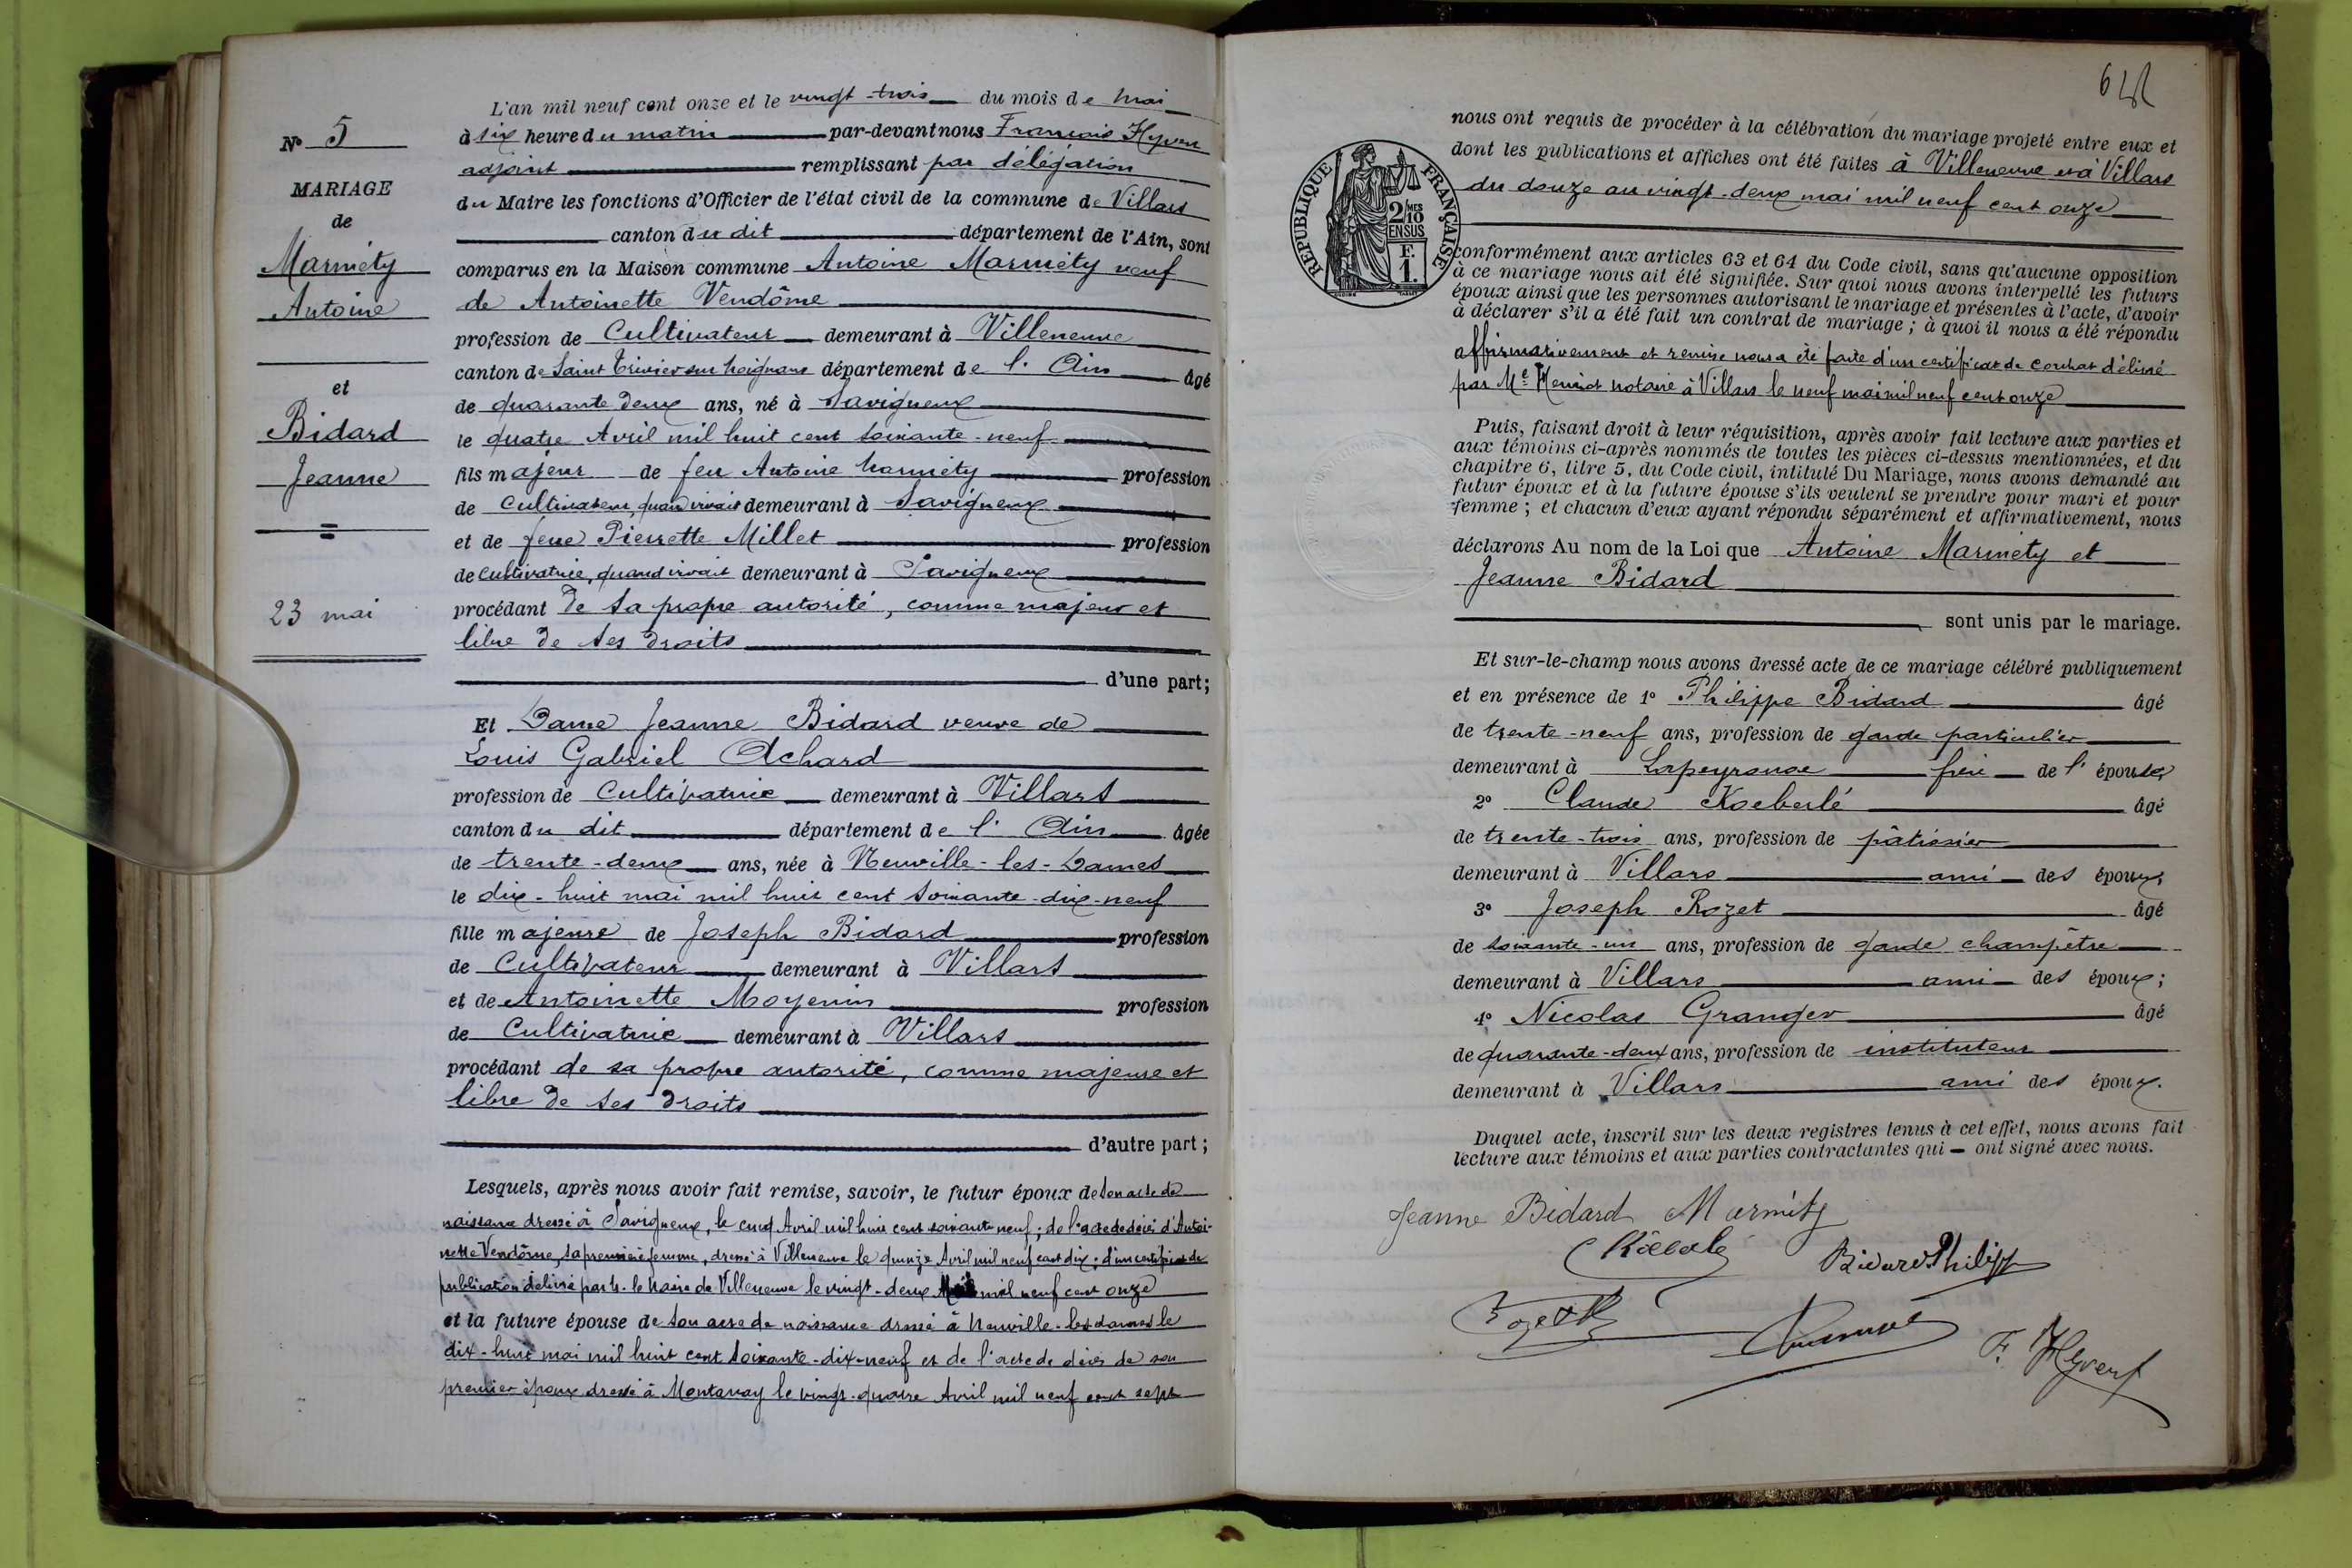 N° 5
MARIAGE
de
Marméty
Antoine
et
Bidard
Jeanne
23 mai
L'an mil neuf cent onze et le vingt-trois du mois de Mai
à six heure du matin par-devant nous François Hyvert
adjoint remplissant par délégation
du Maire les fonctions d'Officier de l'état civil de la commune de Villars
canton du dit département de l'Ain, sont
comparus en la Maison commune Antoine Marmety veuf
de Antoinette Vendôme
profession de Cultivateur demeurant à Villeneuve
canton de Saint Trivier sur Moignans département de l'Ain âgé
de quarante deux ans, né à Savigneux
le quatre Avril mil huit cent soixante-neuf
fils majeur de feu Antoine Marmety profession
de cultivateur, quand vivait demeurant à Savigneux
et de feue Pierrette Millet profession
de cultivatrice, quand vivait demeurant à Savigneux
procédant de sa propre autorité, comme majeur et
libre de ses droits
d'une part;
Et Dame Jeanne Bidard veuve de
Louis Gabriel Achard
profession de Cultivatrice demeurant à Villars
canton du dit département de l'Ain âgée
de trente-deux ans, née à Neuville-les-Dames
le dix-huit mai mil huit cent soixante-dix-neuf
fille majeure de Joseph Bidard profession
de Cultivateur demeurant à Villars
et de Antoinette Moyenin profession
de Cultivatrice demeurant à Villars
procédant de sa propre autorité, comme majeure et
libre de ses droits
d'autre part;
Lesquels, après nous avoir fait remise, savoir, le futur époux de son acte de
naissance dressé à Savigneux, le cinq Avril mil huit cent soixante neuf; de l'acte de décès d'Antoi-
nette Vendôme, sa première femme, dressé à Villeneuve le quinze Avril mil neuf cent dix; d'un certificat de
publication délivré par M. le Maire de Villeneuve le vingt-deux Mai mil neuf cent onze
et la future épouse de son acte de naissance dressé à Neuville-les-dames le
dix-huit mai mil huit cent soixante-dix-neuf et de l'acte de décès de son
premier époux dressé à Montanay le vingt-quatre Avril mil neuf cent sept
nous ont requis de procéder à la célébration du mariage projeté entre eux et
dont les publications et affiches ont été faites à Villeneuve et à Villars
du douze au vingt-deux mai mil neuf cent onze
RÉPUBLIQUE FRANÇAISE
2/10
MES
EN SUS
F.
1.
conformément aux articles 63 et 64 du Code civil, sans qu'aucune opposition
à ce mariage nous ait été signifiée. Sur quoi nous avons interpellé les futurs
époux ainsi que les personnes autorisant le mariage et présentes à l'acte, d'avoir
à déclarer s'il a été fait un contrat de mariage; à quoi il nous a été répondu
affirmativement et remise nous a été faite d'un certificat de contrat délivré
par Me notaire à Villars le neuf mai mil neuf cent onze
Puis, faisant droit à leur réquisition, après avoir fait lecture aux parties et
aux témoins ci-après nommés de toutes les pièces ci-dessus mentionnées, et du
chapitre 6, titre 5, du Code civil, intitulé Du Mariage, nous avons demandé au
futur époux et à la future épouse s'ils veulent se prendre pour mari et pour
femme; et chacun d'eux ayant répondu séparément et affirmativement, nous
déclarons Au nom de la Loi que Antoine Marmety et
Jeanne Bidard
sont unis par le mariage.
Et sur-le-champ nous avons dressé acte de ce mariage célébré publiquement
et en présence de 1° Philippe Bidard âgé
de trente-neuf ans, profession de garde particulier
demeurant à Lapeyrouse frère de l'épouse,
2° Claude Koeberlé âgé
de trente-trois ans, profession de pâtissier
demeurant à Villars ami des époux;
3° Joseph Rozet âgé
de soixante-un ans, profession de garde champêtre
demeurant à Villars ami des époux;
4° Nicolas Granger âgé
de quarante-deux ans, profession de instituteur
demeurant à Villars ami des époux.
Duquel acte, inscrit sur les deux registres tenus à cet effet, nous avons fait
lecture aux témoins et aux parties contractantes qui ont signé avec nous.
Jeanne Bidard Marmity
Bidard Philipp
F. Hyvert